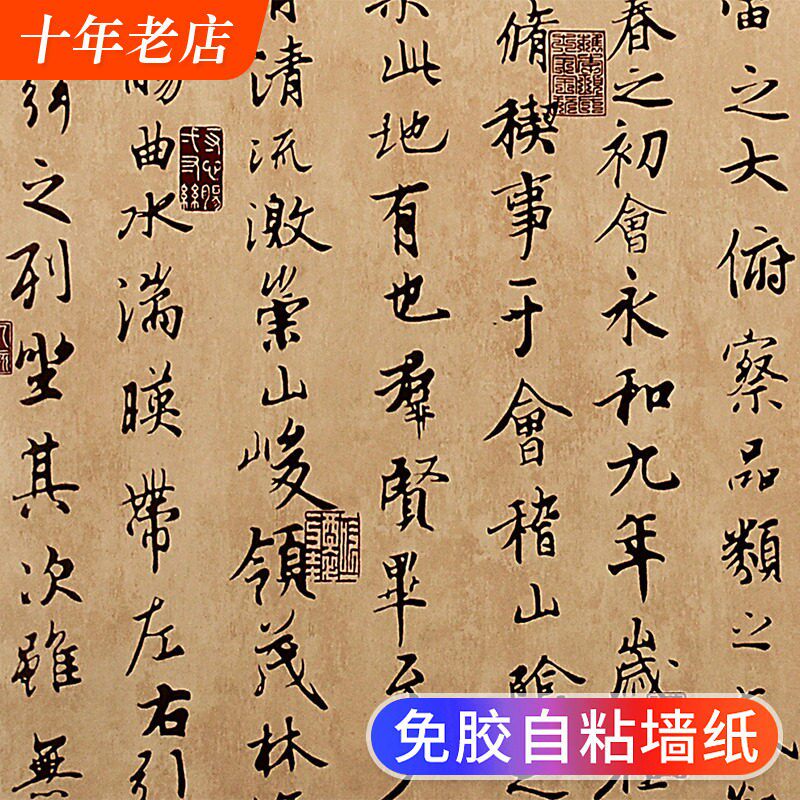 十年老店
之大俯察品類之
春之初會永和九年歲
脩稧事于會稽山陰之
此地有也羣賢畢至
清流激崇山峻領茂林
曲水湍暎帶左右引
之列坐其次雖無
免胶自粘墙纸